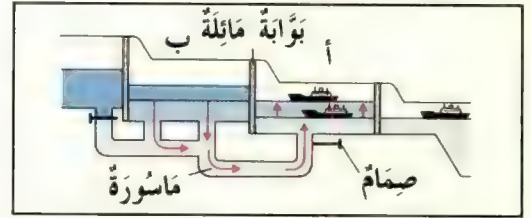 أ
بَوَّابَةٌ مَائِلَةٌ ب
مَاسُورَةٌ
صِمَامٌ